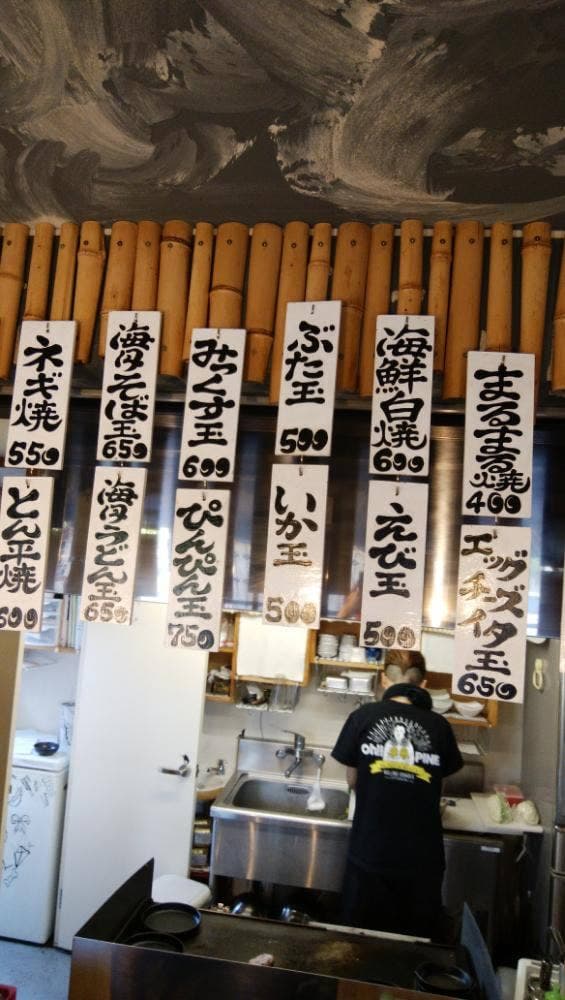 まるまる焼
400
海鮮白焼
600
ぶた玉
500
みっくす玉
600
海鮮そば玉
650
ネギ焼
550
エッグチーズイタ玉
650
えび玉
500
いか玉
500
ぴんぴん玉
750
海鮮うどん玉
650
とん平焼
600
oh!!
PINE